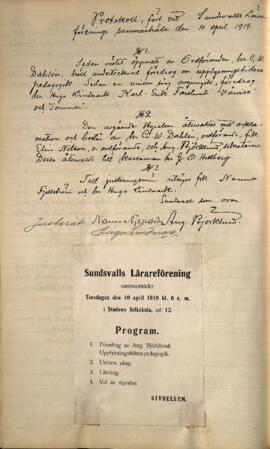 Protokoll, fört vid Sundsvalls Lärare-
förenings sammanträde den 10 april 1919.
§1.
Sedan mötet öppnats av Ordföranden, hr C. W.
Dahlén, höll undertecknad föredrag om upplysningstidens
pedagogik. Sedan en unison sång avsjungits, föredrog
hr Hugo Lindmark Karl-Erik Forsslund
och Sommar.
§2.
Den avgående styrelsen återvaldes med ackla-
mation och består av hr C. W. Dahlén, ordförande, frk
Elin Nilson, v. ordförande, och Aug. Björklund, sekreterare.
Dess återvalde till kassaman hr G. O. Hellberg.
§3.
Till justeringsmän utsågs frk Nanna
Fjellström och hr Hugo Lindmark.
Sundsvall som ovan.
Justerat Nanna Aug. Björklund.
Hugo Lindmark
Sundsvalls Lärareförening
sammanträder
Torsdagen den 10 april 1919 kl. 6 e. m.
i Stadens folkskola, sal 12.
Program.
1. Föredrag av Aug. Björklund:
Upplysningstidens pedagogik.
2. Unison sång.
3. Läsning.
4. Val av styrelse.
STYRELSEN.